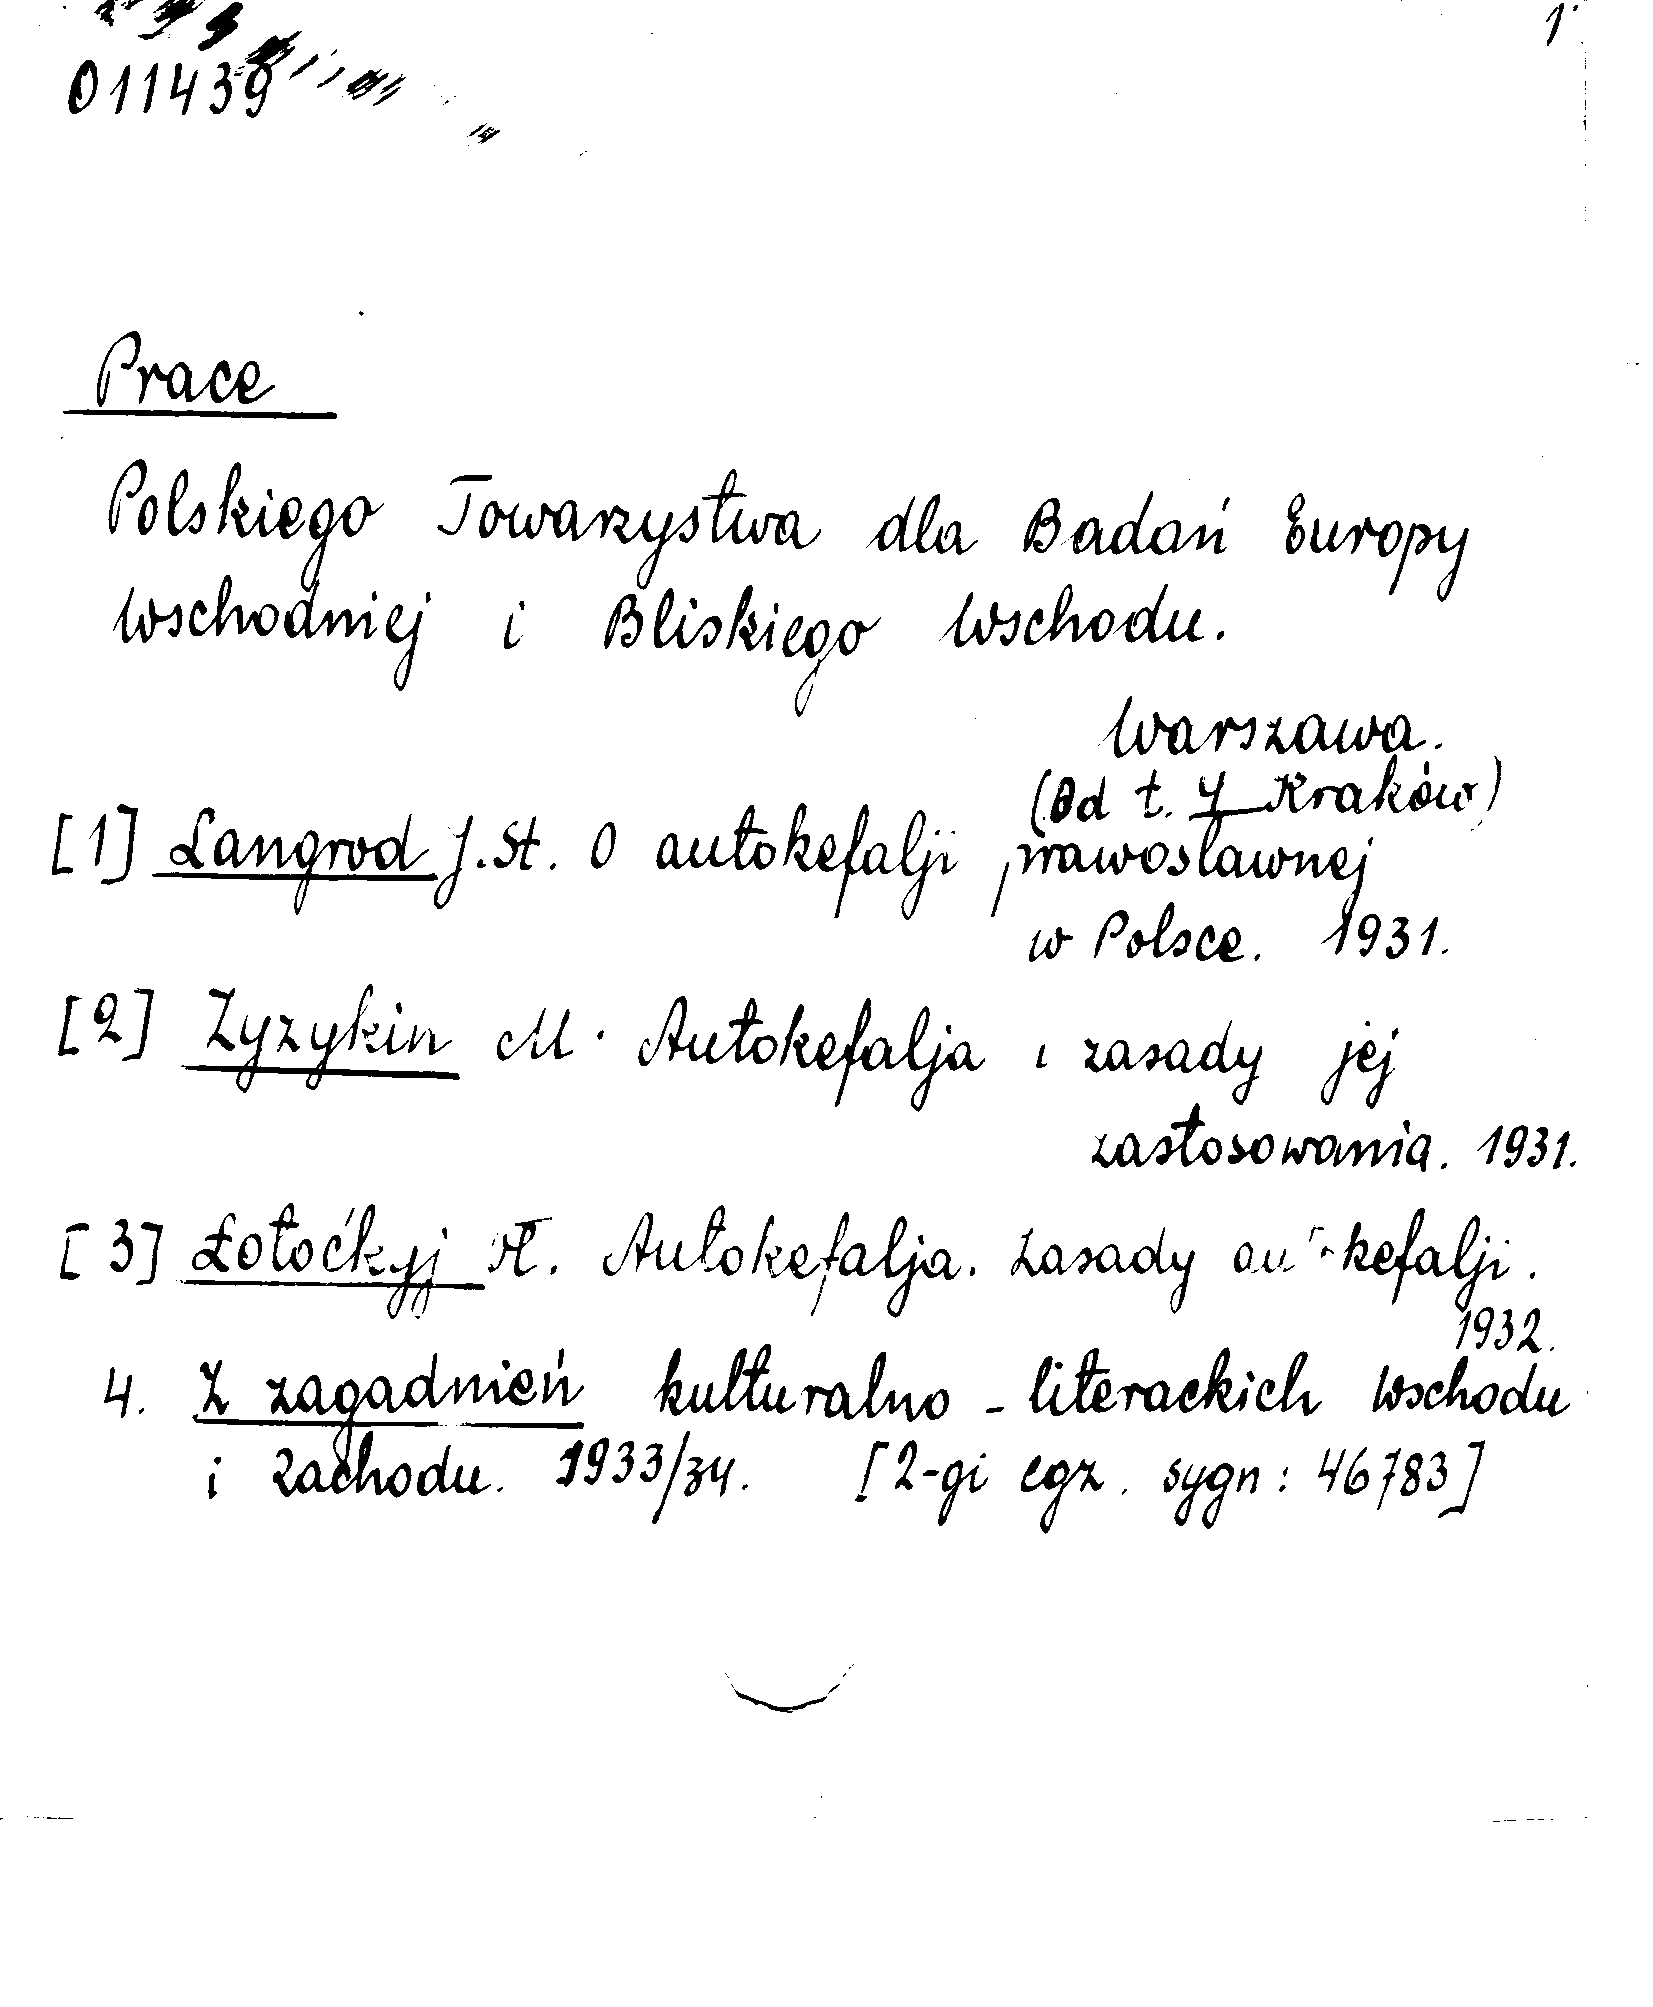 1.
011439
Prace
Polskiego Towarzystwa dla Badań Europy
Wschodniej i Bliskiego Wschodu.
Warszawa.
(Od t. 4 Kraków)
[1] Langrod J. St. O autokefalji prawosławnej
w Polsce. 1931.
[2] Zyzykin M. Autokefalja i zasady jej
zastosowania. 1931.
[3] Łotoćkyj A. Autokefalja. Zasady autokefalji.
1932.
4. Z zagadnień kulturalno-literackich Wschodu
i Zachodu. 1933/34. [2-gi egz. sygn: 46783]